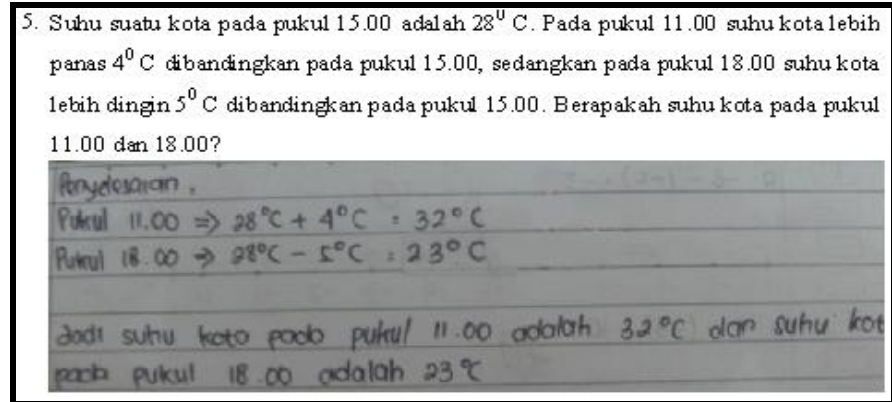 5. Suhu suatu kota pada pukul 15.00 adalah 28⁰ C. Pada pukul 11.00 suhu kota lebih
panas 4⁰ C dibandingkan pada pukul 15.00, sedangkan pada pukul 18.00 suhu kota
lebih dingin 5⁰ C dibandingkan pada pukul 15.00. Berapakah suhu kota pada pukul
11.00 dan 18.00?
Penyelesaian.
Pukul 11.00 => 28°C + 4°C = 32°C
Pukul 18.00 => 28°C - 5°C = 23°C
Jadi suhu kota pada pukul 11.00 adalah 32°C dan suhu kot
pada pukul 18.00 adalah 23°C